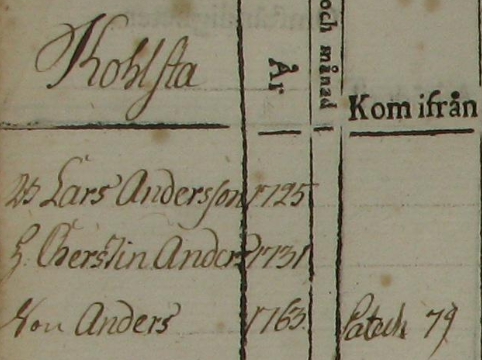 Kohlsta
År
och månad
Kom ifrån
Lars Andersson 1725
H. Cherstin Anders 1731
Son Anders 1763 79